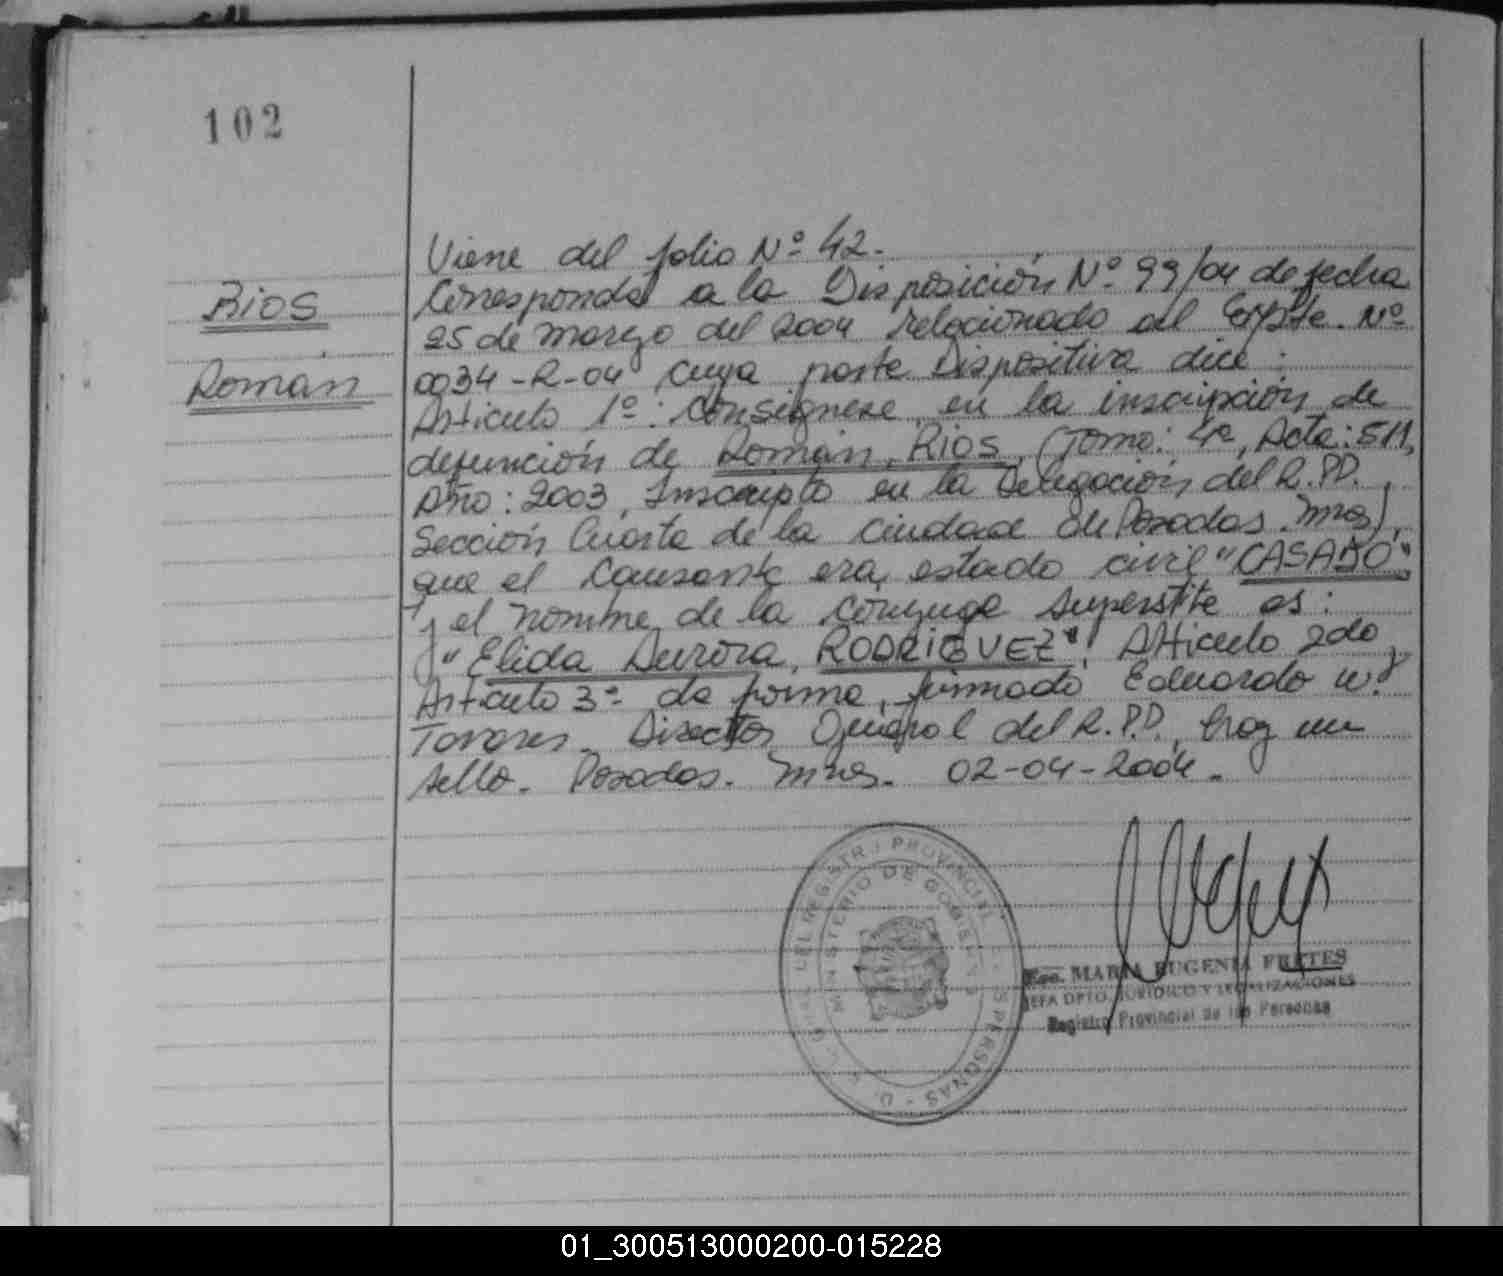 102
Rios
Román
Viene del folio Nº 42.-
Corresponde a la Disposición Nº 99/04 de fecha
25 de marzo del 2004 relacionado al Expte. Nº
0034-R-04 cuya parte Dispositiva dice:
Articulo 1º: Consignese en la inscripción de
defunción de Román, RIOS, (Tomo: Acta: 511,
Año: 2003, Inscripto en la Delegación del R.P.P.,
Sección Cuarta de la ciudad de Posadas. Mnes),
que el Causante era, estado civil "CASADO"
y el nombre de la cónyuge superstite es:
"Elida Aurora, RODRIGUEZ", Articulo 2do y
Articulo 3º de forma, firmado Eduardo W.
Tavares. Director General del R.P.P., hay un
sello. Posadas. Mnes. 02-04-2004.
DEL REGISTRO PROVINCIAL PERSONAS
MINISTERIO DE GOBIERNO
Esc. MARIA EUGENIA FRETES
JEFA DPTO. JURIDICO Y LEGALIZACIONES
Registro Provincial de las Personas
01_300513000200-015228